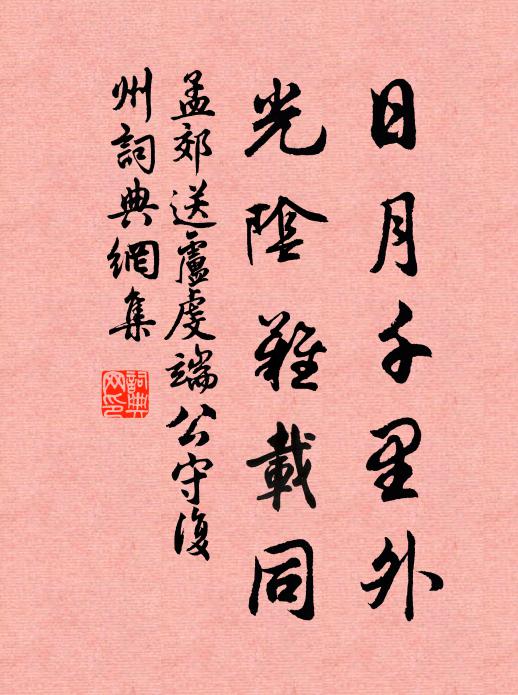 日月千里外
光陰難載同
孟郊送盧虔端公守復
州詞典網集
詞典
网印